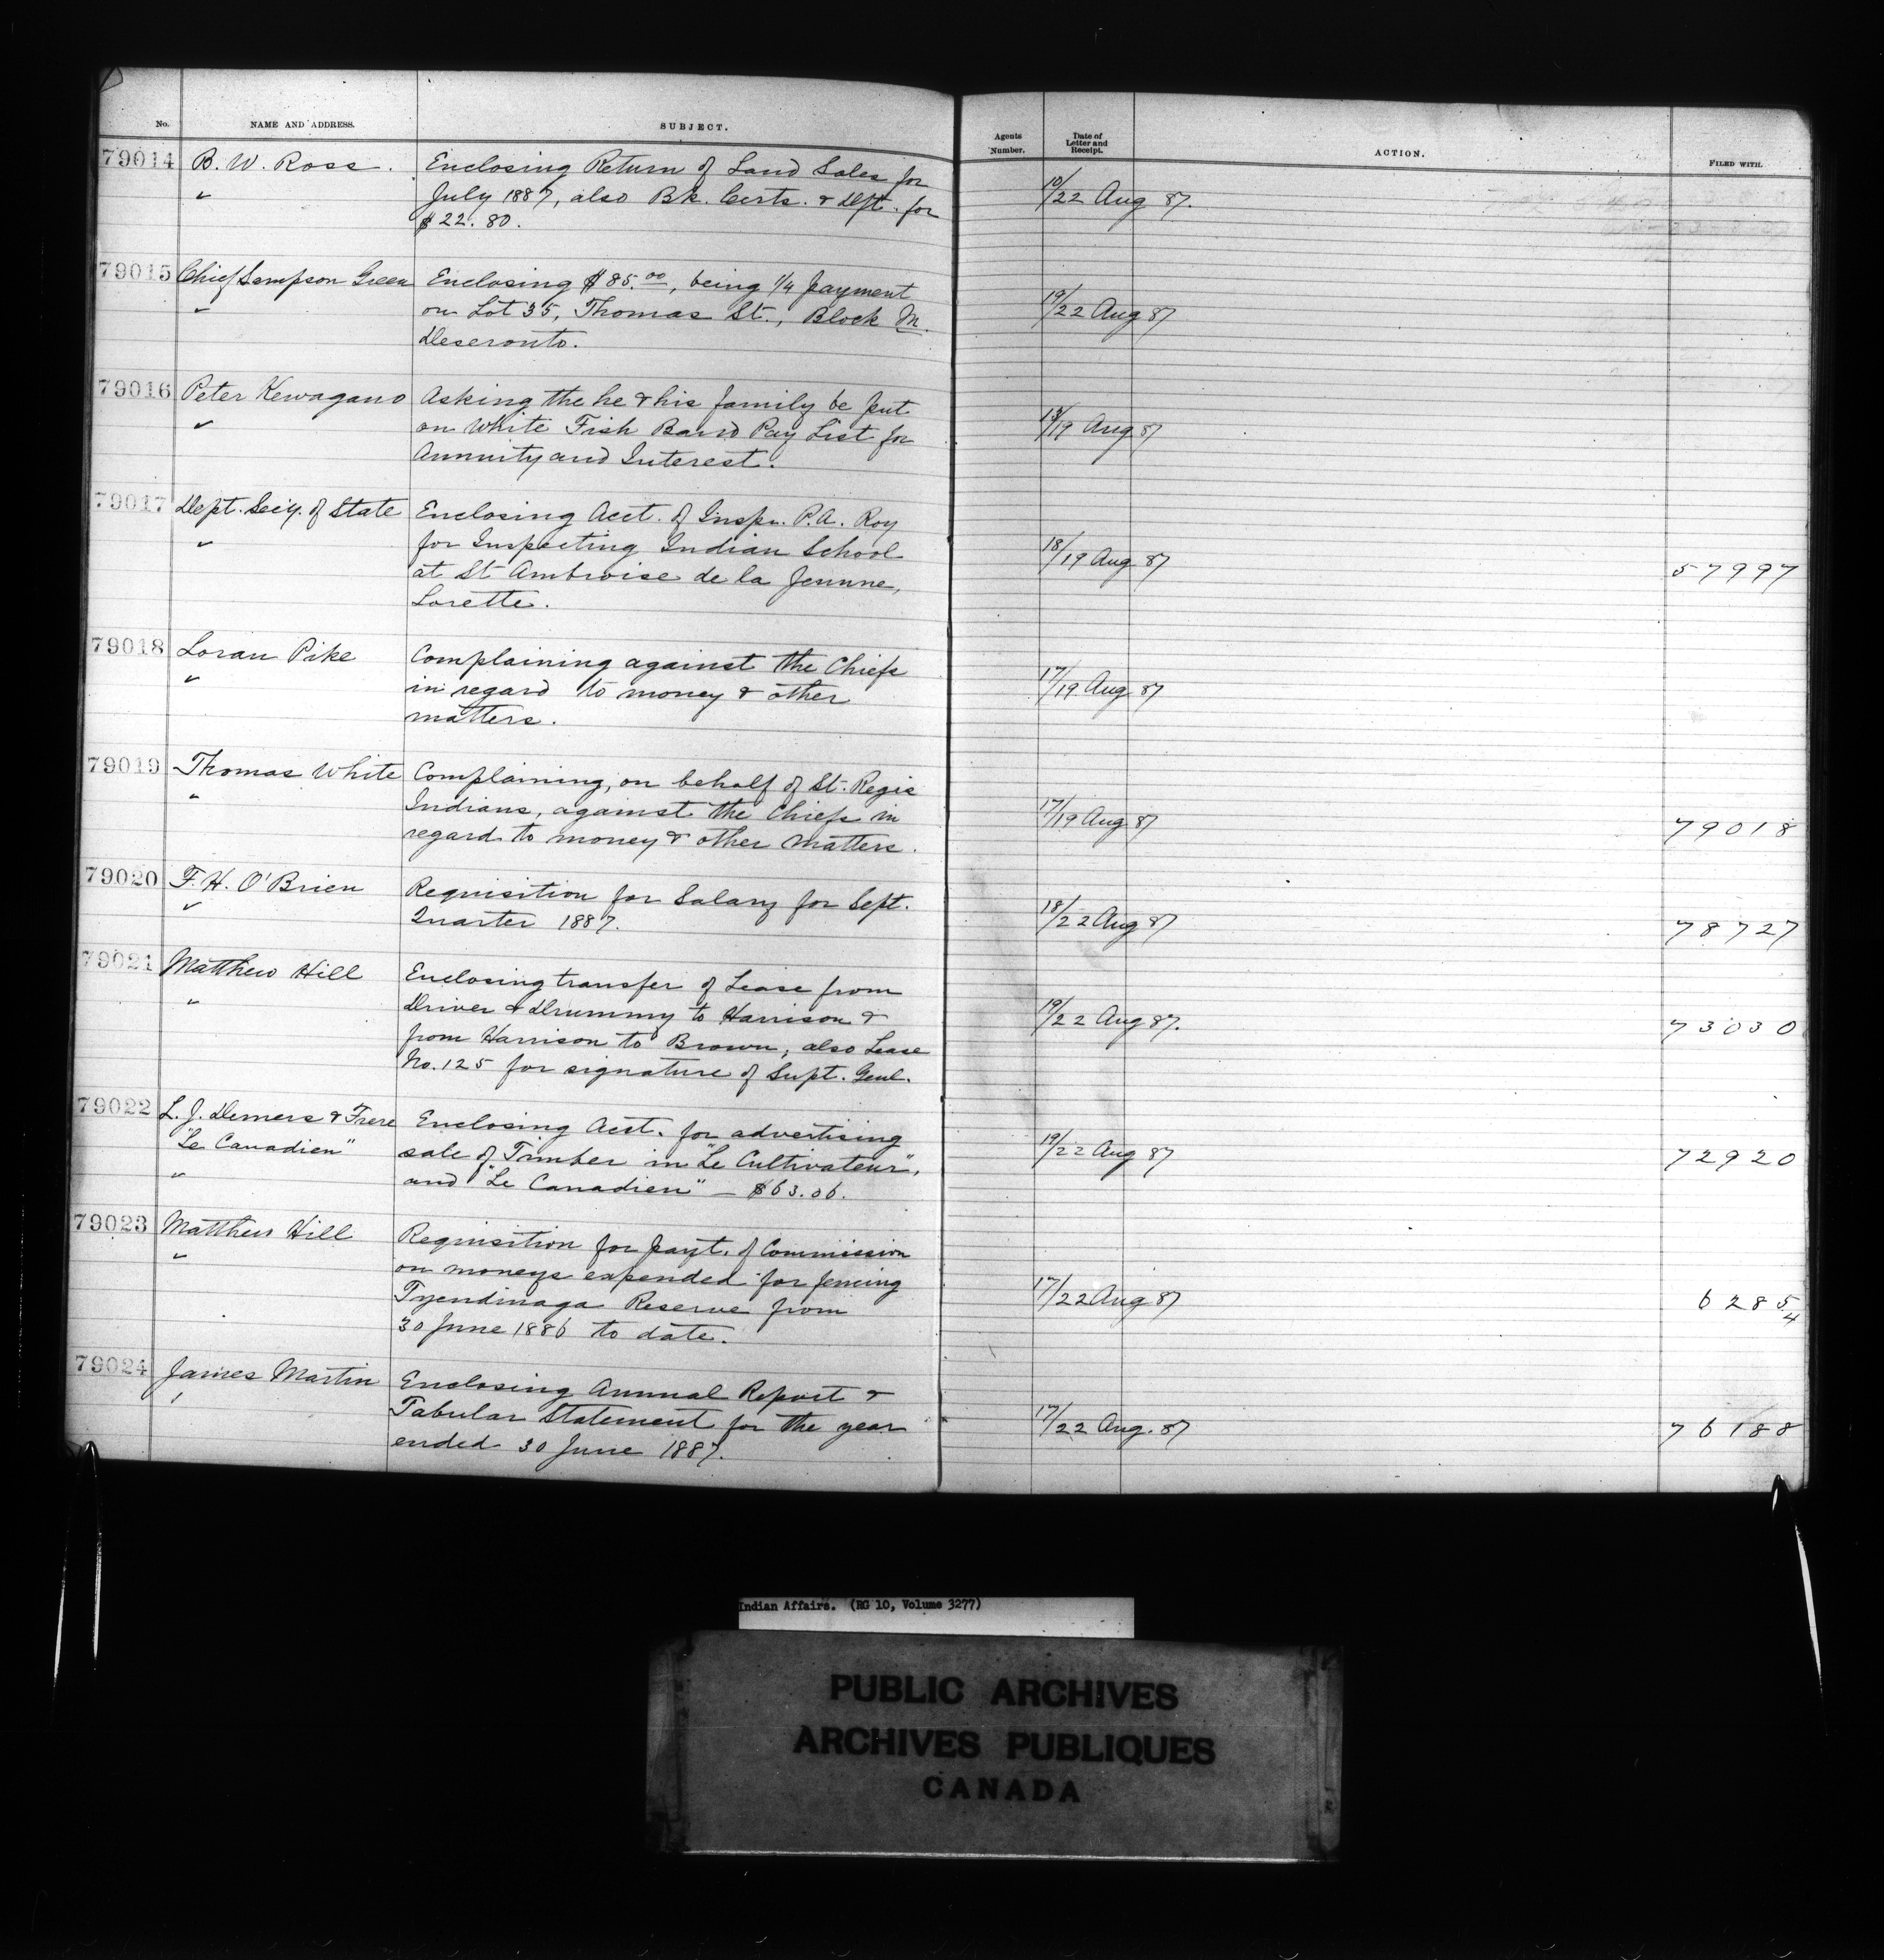 No. NAME AND ADDRESS. SUBJECT. Agents Number. Date of Letter and Receipt. ACTION. FILED WITH.
79014 B. W. Ross. Enclosing Return of Land Sales for
July 1887, also Bk. Certs. & Dft. for
$22.80.
10/22 Aug 87.
79015 Chief Sampson Green Enclosing $85.00, being 1/4 payment
on Lot 35, Thomas St., Block M.
Deseronto.
19/22 Aug 87
79016 Peter Kewagano Asking the he & his family be put
on White Fish Band Pay List for
Annuity and Interest.
/19 Aug 87
79017 Dept. Secy. of State Enclosing Acct. of Inspr. P.A. Roy
for Inspecting Indian School
at St Ambroise de la Jeunne,
Lorette.
18/19 Aug 87 57997
79018 Loran Pike Complaining against the Chiefs
in regard to money & other
matters.
17/19 Aug 87
79019 Thomas White Complaining, on behalf of St. Regis
Indians, against the Chiefs in
regard to money & other matters.
17/19 Aug 87 79018
79020 F. H. O'Brien Requisition for Salary for Sept.
Quarter 1887.
18/22 Aug 87 78727
79021 Matthew Hill Enclosing transfer of Lease from
Driver & Drummy to Harrison &
from Harrison to Brown; also Lease
No. 125 for signature of Supt. Genl.
19/22 Aug 87. 73030
79022 L. J. Demers & Frere Enclosing Acct. for advertising
"Le Canadien" sale of Timber in "Le Cultivateur",
and "Le Canadien" — $63.06.
19/22 Aug 87 72920
79023 Matthew Hill Requisition for payt. of Commission
on moneys expended for fencing
Tyendinaga Reserve from
30 June 1886 to date.
17/22 Aug 87 6285
4
79024 James Martin Enclosing Annual Report &
Tabular Statement for the year
ended 30 June 1887.
17/22 Aug. 87 76188
Indian Affairs. (RG 10, Volume 3277)
PUBLIC ARCHIVES
ARCHIVES PUBLIQUES
CANADA